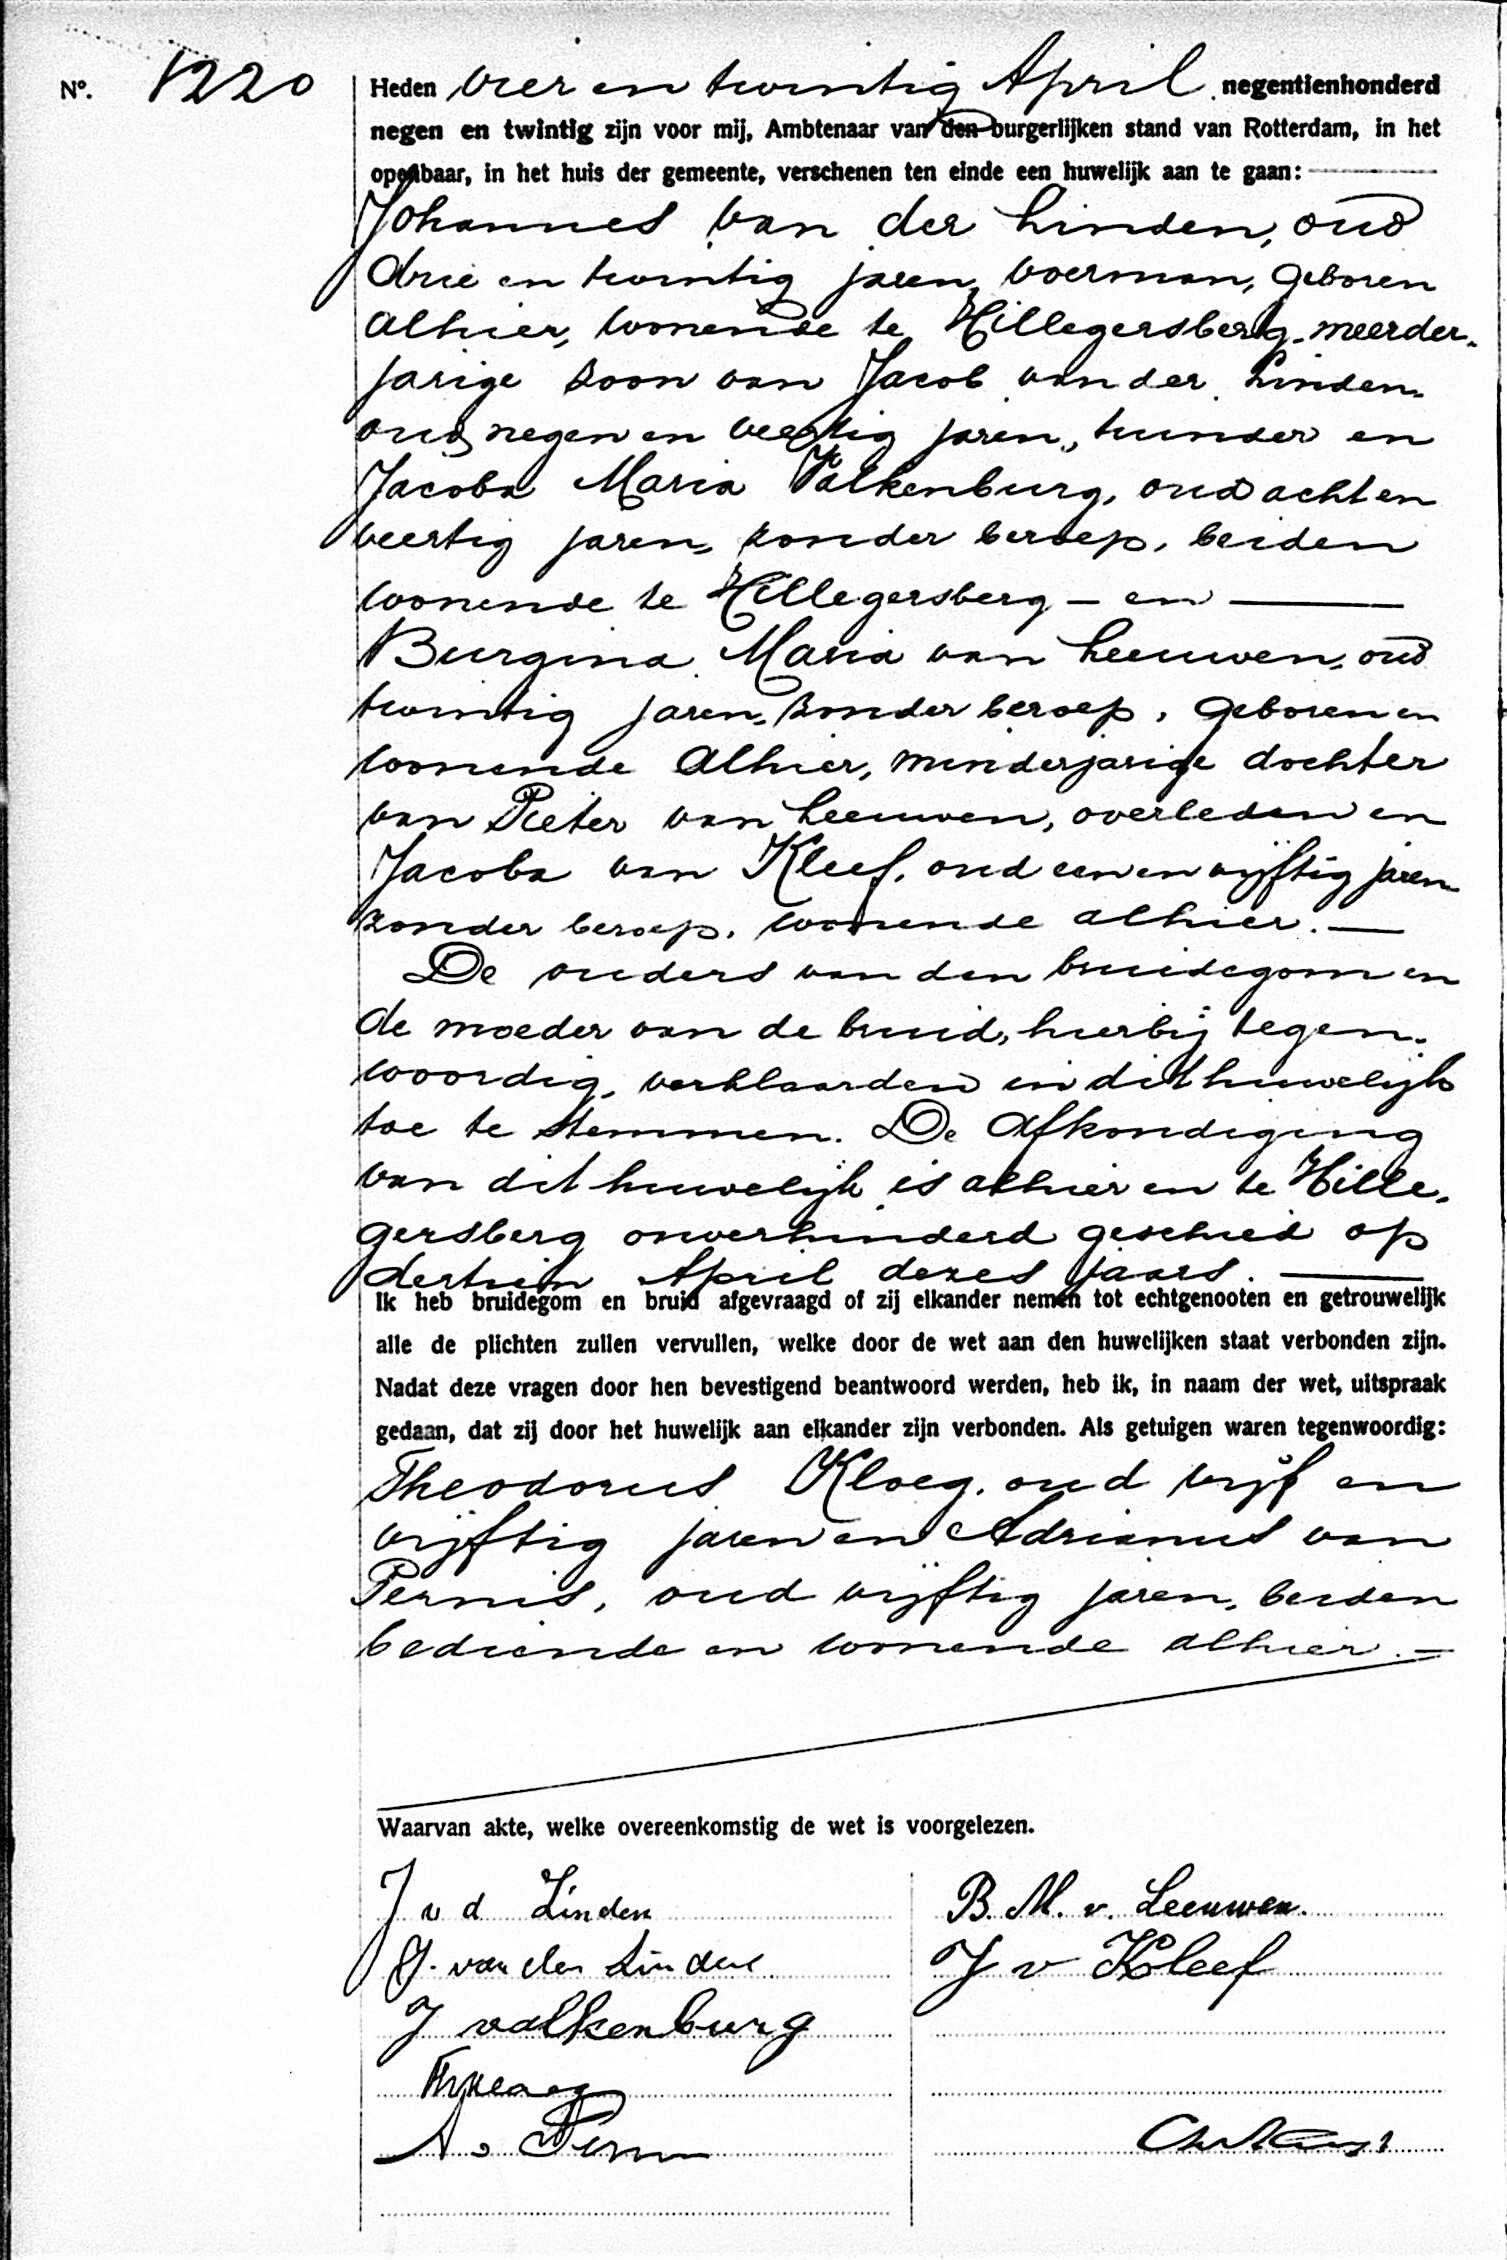 Nº. 1220
Heden vier en twintig April negentienhonderd
negen en twintig zijn voor mij, Ambtenaar van den burgerlijken stand van Rotterdam, in het
openbaar, in het huis der gemeente, verschenen ten einde een huwelijk aan te gaan:
Johannes van der Linden, oud
drie en twintig jaren, voerman, geboren
alhier, wonende te Hillegersberg, meerder-
jarige zoon van Jacob van der Linden,
oud negen en veertig jaren, tuinder en
Jacoba Maria Valkenburg, oud acht en
veertig jaren, zonder beroep, beiden
wonende te Hillegersberg — en —
Burgina Maria van Leeuwen, oud
twintig jaren, zonder beroep, geboren en
wonende alhier, minderjarige dochter
van Pieter van Leeuwen, overleden en
Jacoba van Kleef, oud een en vijftig jaren
zonder beroep, wonende alhier. —
De ouders van den bruidegom en
de moeder van de bruid, hierbij tegen-
woordig, verklaarden in dit huwelijk
toe te stemmen. De afkondiging
van dit huwelijk is alhier en te Hille-
gersberg onverhinderd geschied op
dertien April dezes jaars. —
Ik heb bruidegom en bruid afgevraagd of zij elkander nemen tot echtgenooten en getrouwelijk
alle de plichten zullen vervullen, welke door de wet aan den huwelijken staat verbonden zijn.
Nadat deze vragen door hen bevestigend beantwoord werden, heb ik, in naam der wet, uitspraak
gedaan, dat zij door het huwelijk aan elkander zijn verbonden. Als getuigen waren tegenwoordig:
Theodorus Kloeg, oud vijf en
vijftig jaren en Adrianus van
Pernis, oud vijftig jaren, beiden
bediende en wonende alhier. —
Waarvan akte, welke overeenkomstig de wet is voorgelezen.
J v d Linden
B. M. v. Leeuwen.
J. van der Linden
J v Kleef
J valkenburg